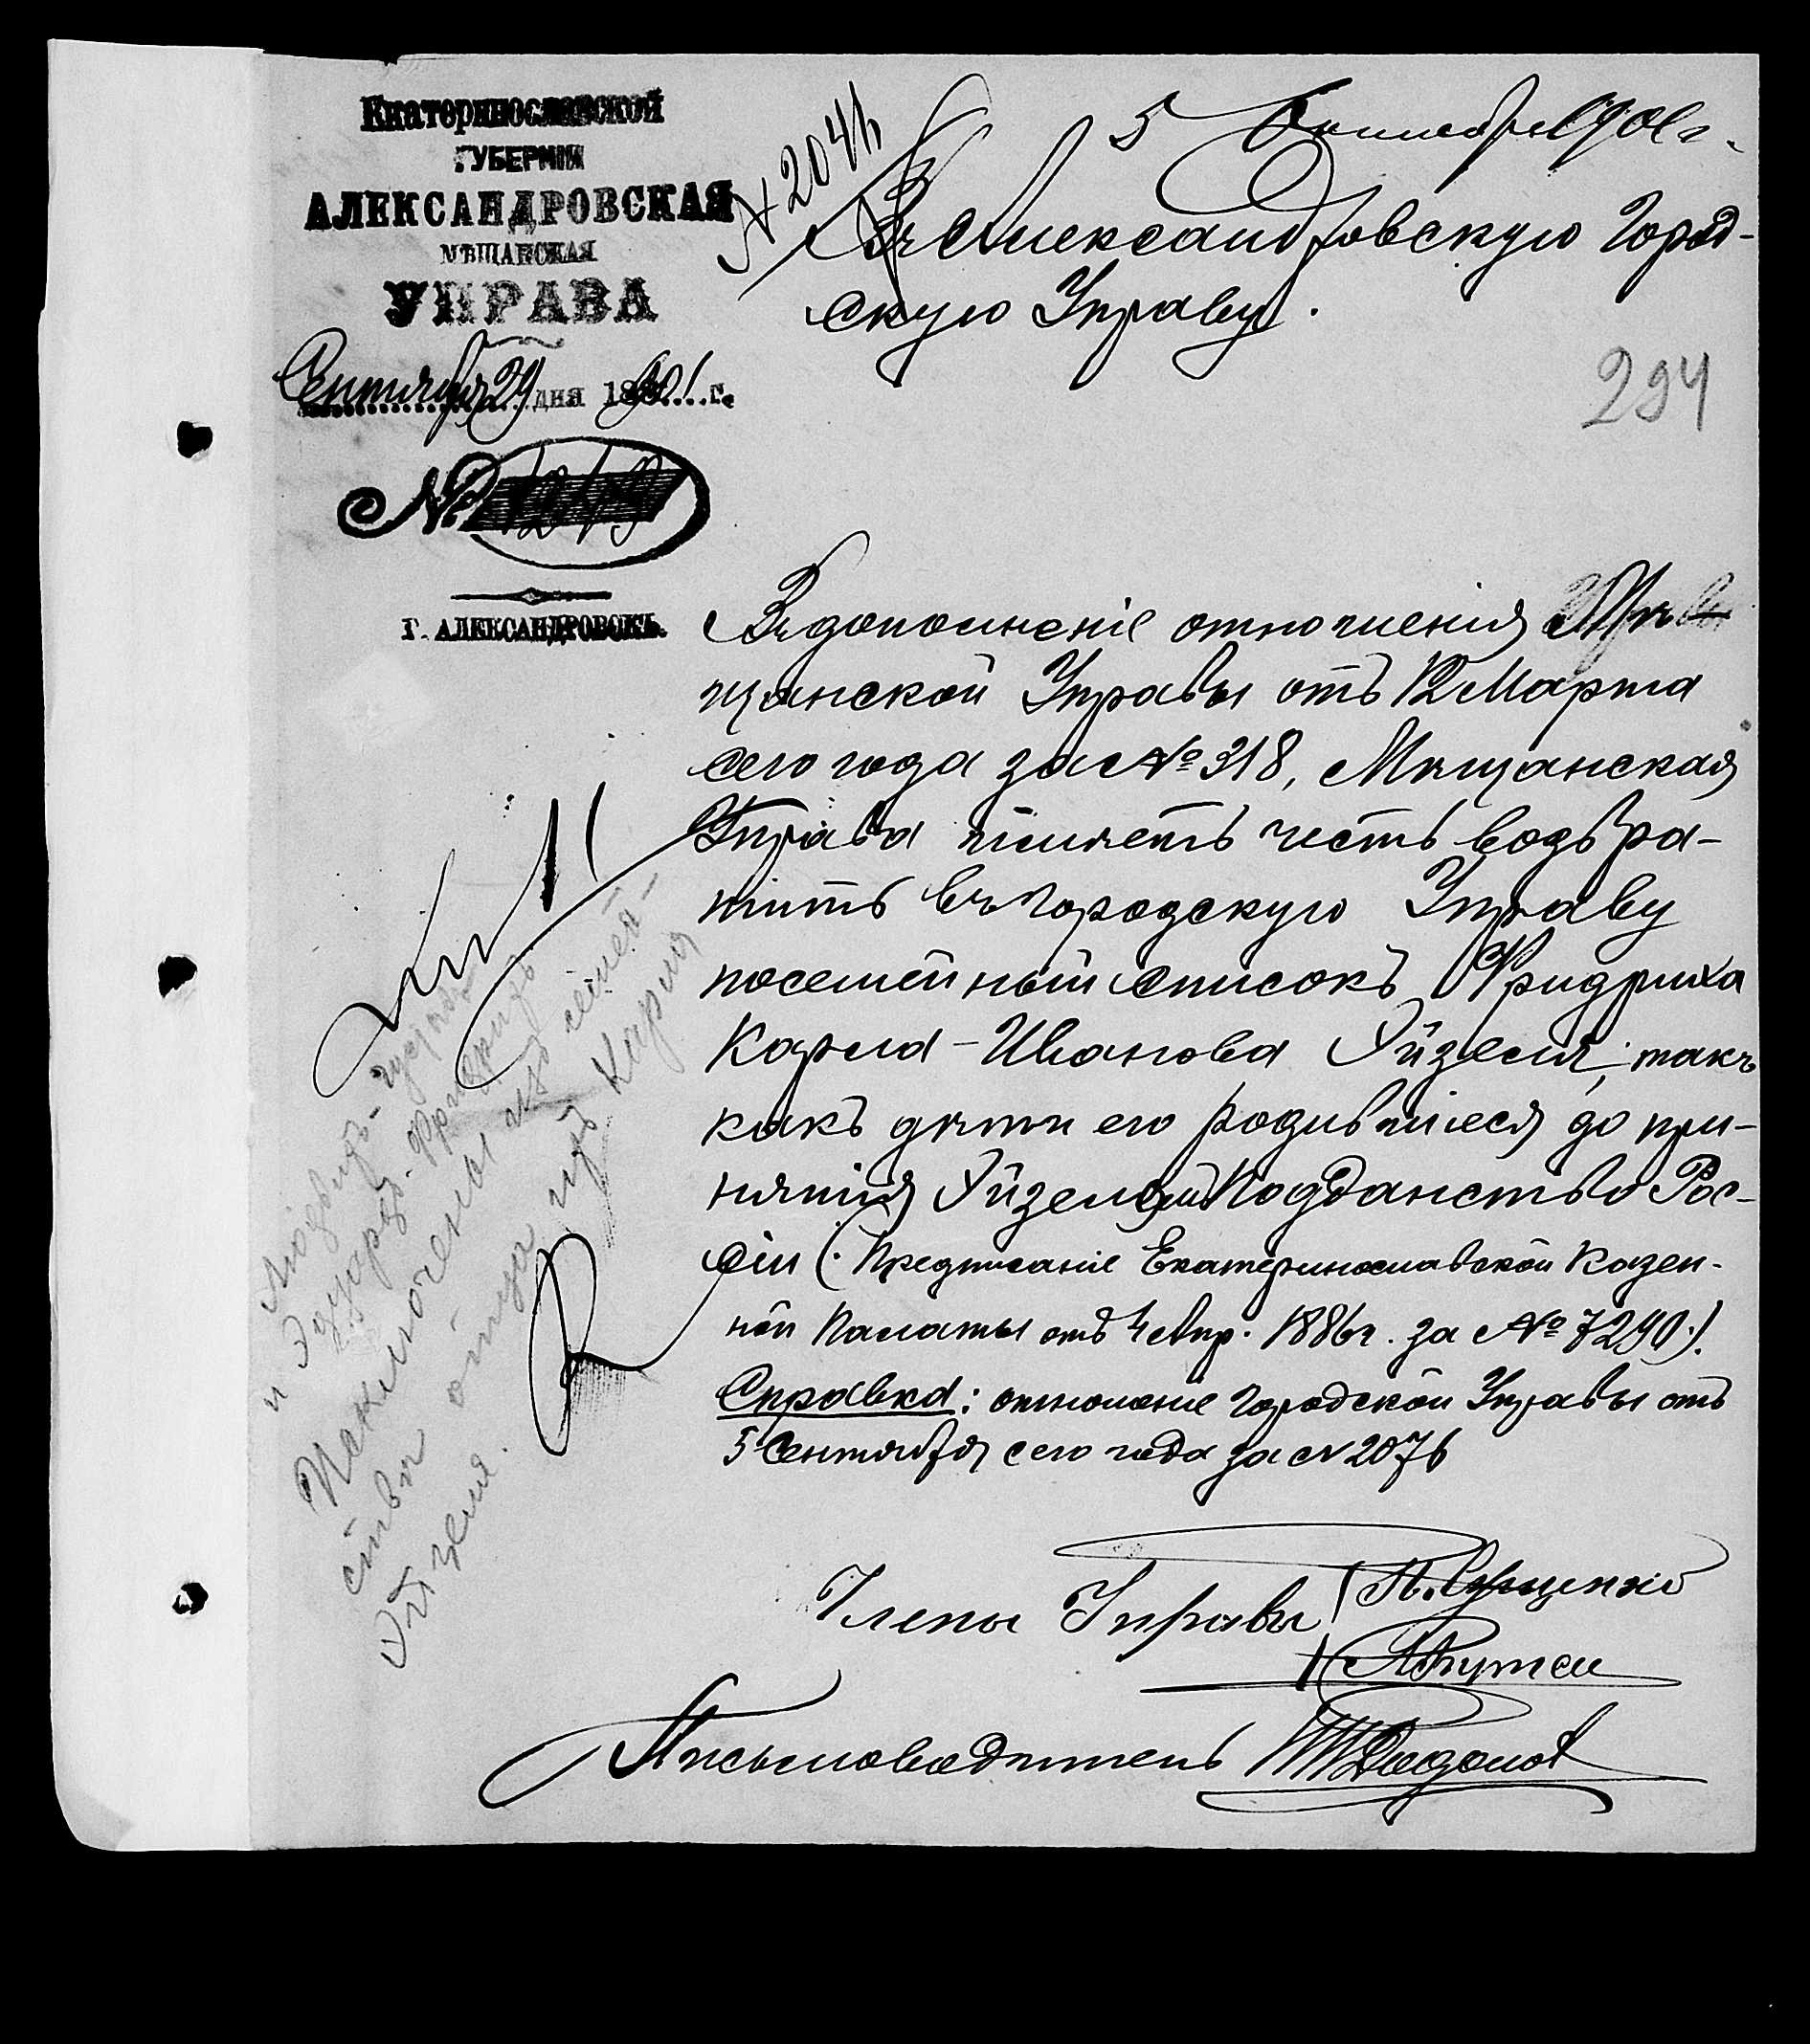 Екатеринославской
ГУБЕРНІИ
АЛЕКСАНДРОВСКАЯ
МѢЩАНСКАЯ
УПРАВА
Сентября 29 дня 1901 г.
№ 1249
Г. АЛЕКСАНДРОВСКЪ.
5 Октября 1901 г.
Въ Александровскую Город-
скую Управу.
294
Въ дополненіе отношенія Мѣ-
щанской Управы отъ 12 Марта
сего года за № 318, Мѣщанская
Управа имѣетъ честь возвра-
тить въ Городскую Управу
посемейный списокъ Фридриха
Карла-Иванова Эйзеля, такъ
какъ дѣти его родившіеся до при-
нятія Эйзелемъ Подданства Рос-
сіи (. Предписаніе Екатеринославской Казен-
ной Палаты отъ 4 Апр. 1886 г. за № 7290.).
Справка: отношеніе Городской Управы отъ
5 Сентября сего года за № 2076
Члены Управы
Письмоводитель
Людвигъ-
и Эдуардъ-Фридрихъ
Исключены изъ семей-
ства отца ихъ Карла
Эйзеля.